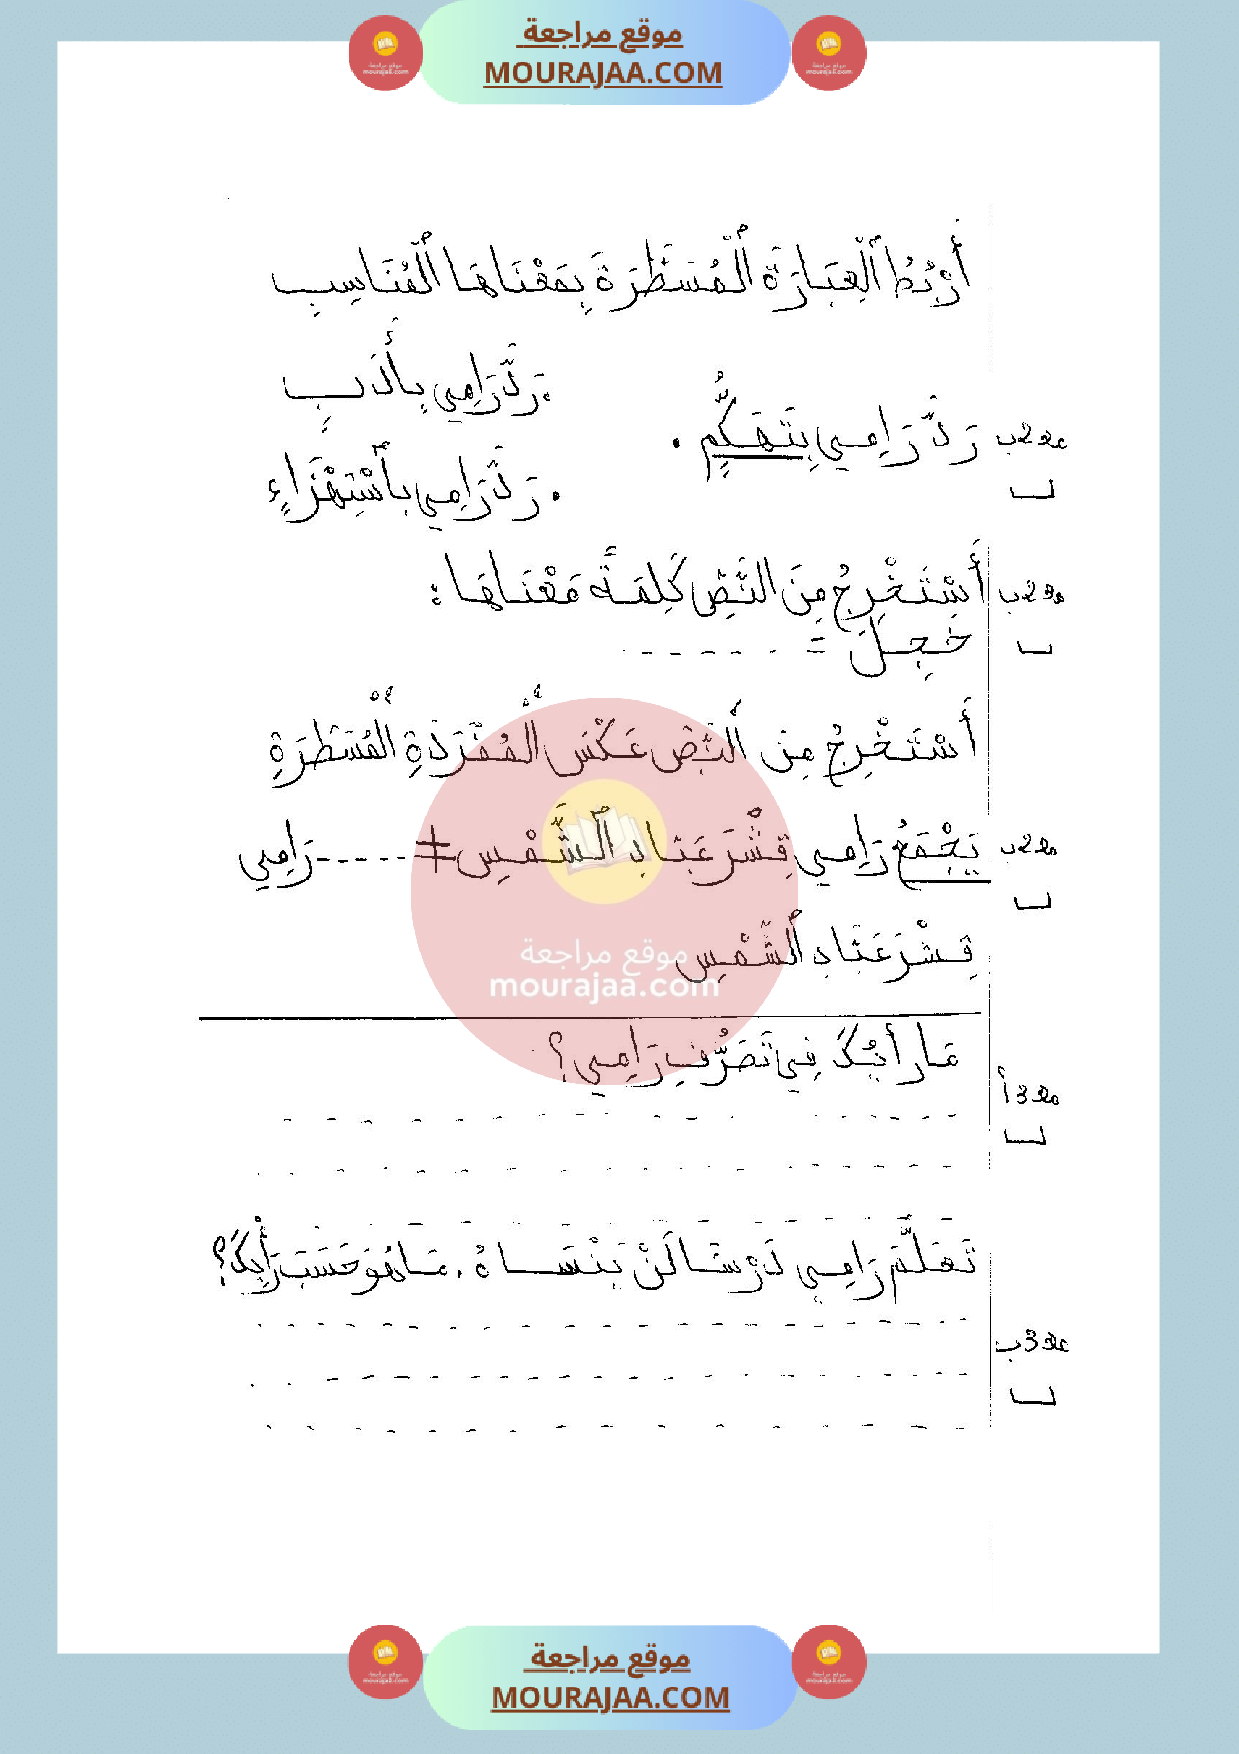 موقع مراجعة
MOURAJAA.COM
أَرْبُطُ الْعِبَارَةَ الْمُسَطَّرَةَ بِمَعْنَاهَا الْمُنَاسِبِ
مع2ب رَدَّ رَامِي بِتَهَكُّمٍ .
. رَدَّ رَامِي بِأَدَبٍ
. رَدَّ رَامِي بِاسْتِهْزَاءٍ
مع2ب أَسْتَخْرِجُ مِنَ النَّصِّ كَلِمَةً مَعْنَاهَا :
خَجِلَ = - - - - - -
أَسْتَخْرِجُ مِنَ النَّصِّ عَكْسَ الْمُفْرَدَةِ الْمُسَطَّرَةِ
مع2ب يَجْمَعُ رَامِي قِشْرَ عَبَّادِ الشَّمْسِ ≠ - - - - - رَامِي
قِشْرَ عَبَّادِ الشَّمْسِ
موقع مراجعة
mourajaa.com
مَا رَأْيُكَ فِي تَصَرُّفِ رَامِي ؟
مع3أ
تَعَلَّمَ رَامِي دَرْسًا لَنْ يَنْسَاهُ . مَا هُوَ حَسَبَ رَأْيِكَ ؟
مع3ب
موقع مراجعة
MOURAJAA.COM